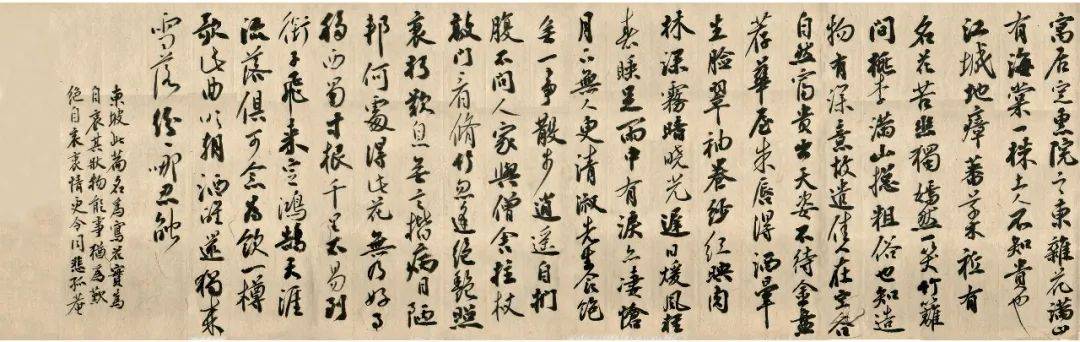 寓居定惠院之東雜花滿山
有海棠一株土人不知貴也
江城地瘴蕃草木秖有
名花苦幽獨嫣然一笑竹籬
間桃李滿山摠粗俗也知造
物有深意故遣佳人在空谷
自然富貴出天姿不待金盤
荐華屋朱唇得酒暈
生臉翠袖卷紗紅映肉
林深霧暗曉光遲日暖風輕
春睡足雨中有淚亦悽愴
月下無人更清淑先生食飽
無一事散步逍遥自捫
腹不問人家與僧舍拄杖
敲門看脩竹忽逢絕艷照
衰朽歎息無言揩病目陋
邦何處得此花無乃好事
移西蜀寸根千里不易到
銜子飛來定鴻鵠天涯
流落俱可念為飲一樽
歌此曲明朝酒醒還獨來
雪落紛紛那忍觸
東坡此篇名為寫花實為
自哀其狀物能事猶為歎
絕自哀哀情更令同悲孤菴